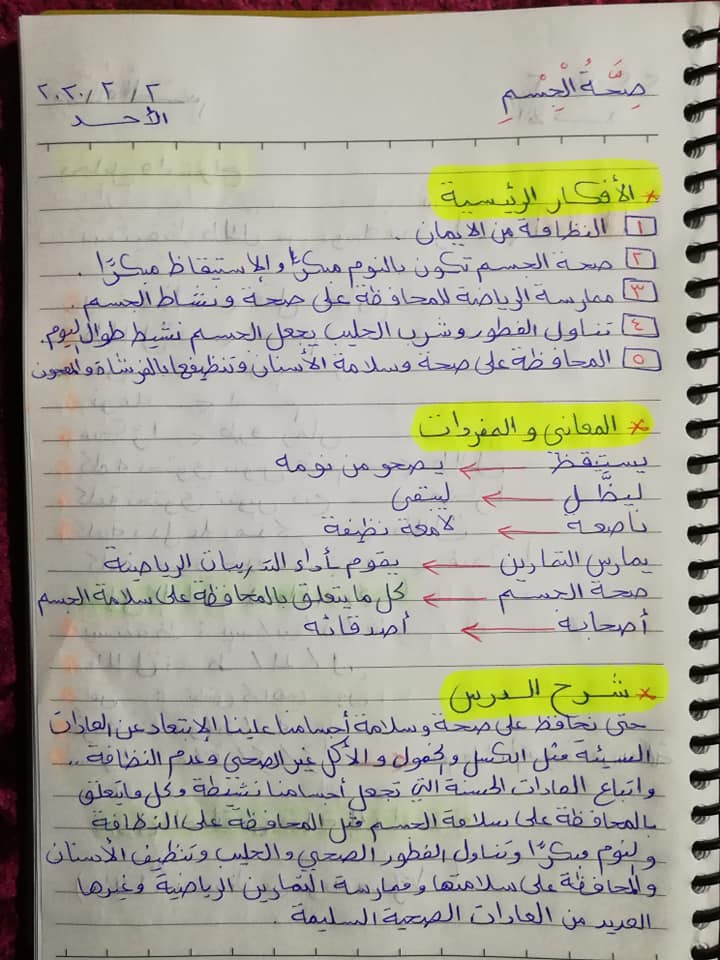 صِحَّةُ الْجِسْمِ
٢/٢/٢٠٢٠
الأحد
* الأفكار الرئيسية
١ النظافة من الايمان .
٢ صحة الجسم تكون بالنوم مبكرًا والإستيقاظ مبكرًا .
٣ ممارسة الرياضة للمحافظة على صحة ونشاط الجسم .
٤ تناول الفطور وشرب الحليب يجعل الجسم نشيط طوال اليوم.
٥ المحافظة على صحة وسلامة الأسنان وتنظيفها بالفرشاة والمعجون
* المعاني و المفردات
يستيقظ ← يصحو من نومه
ليظَّل ← ليبقى
ناصعة ← لامعة نظيفة
يمارس التمارين ← يقوم بأداء التدريبات الرياضية
صحة الجسم ← كل ما يتعلق بالمحافظة على سلامة الجسم
أصحابه ← أصدقائه
* شرح الدرس
حتى نحافظ على صحة وسلامة أجسامنا علينا الإبتعاد عن العادات
السيئة مثل الكسل والخمول و الأكل غير الصحي وعدم النظافة ..
واتباع العادات الحسنة التي تجعل أجسامنا نشطة وكل ما يتعلق
بالمحافظة على سلامة الجسم مثل المحافظة على النظافة
والنوم مبكرًا وتناول الفطور الصحي والحليب وتنظيف الأسنان
والمحافظة على سلامتها وممارسة التمارين الرياضية وغيرها
العديد من العادات الصحية السليمة .